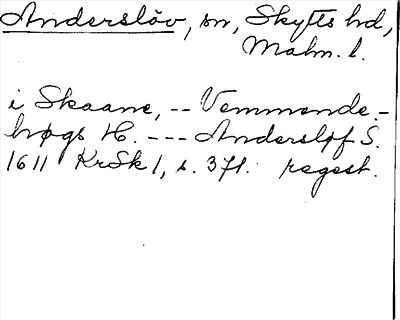 Anderslöv, sn, Skytts hd,
Malm. l.
i Skaane, -- Vemmende-
høgs H. --- Andersløf S.
1611 KrSk 1, s. 371. regest.